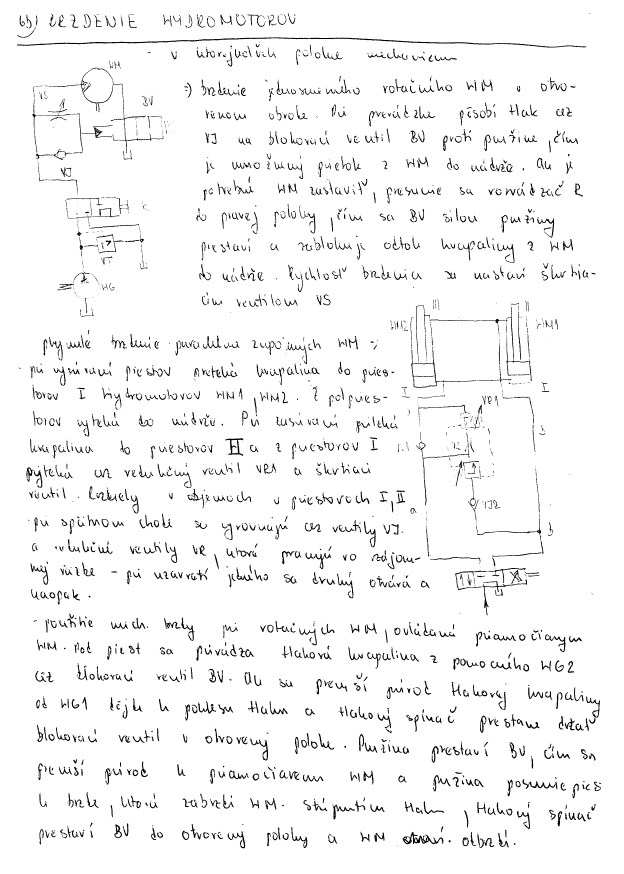 BRZDENIE HYDROMOTOROV
- v ktorejkoľvek polohe mechanizmu
WM
VS
BV
VJ
R
VT
HG
:) brzdenie jednosmerného rotačného WM v otvo-
renom obvode. Pri prevádzke pôsobí tlak cez
VJ na blokovací ventil BV proti pružine, čím
je umožnený prietok z WM do nádrže. Ak je
potrebné WM zastaviť, presunie sa rozvádzač R
do pravej polohy, čím sa BV silou pružiny
prestaví a zablokuje odtok kvapaliny z WM
do nádrže. Rýchlosť brzdenia sa nastaví škrtia-
cim ventilom VS
WM2
II
WM1
plynulé brzdenie paralelne zapojených WM :
pri vysúvaní piestov preteká kvapalina do pries-
torov I hydromotorov WM1, WM2. Z
torov vyteká do nádrže. Pri zasúvaní priteká
kvapalina do priestorov II a z priestorov I
cez redukčný ventil VR1 a škrtiaci
ventil. Rozdiely v objemoch v priestoroch I, II
pri spätnom chode sa vyrovnajú cez ventily VJ.
a redukčné ventily VR, ktoré pracujú vo vzájom-
nej väzbe - pri uzavretí jedného sa druhý otvára a
naopak.
I
I
VR1
VJ2
- použitie mech. brzdy pri rotačných WM, ovládaná priamočiarym
WM. Pod piest sa privádza tlaková kvapalina z pomocného WG2
cez blokovací ventil BV. Ak sa preruší prívod tlakovej kvapaliny
od WG1 dôjde k poklesu tlaku a tlakový spínač prestane držať
blokovací ventil v otvorenej polohe. Pružina prestaví BV, čím sa
preruší prívod k priamočiaremu WM a pružina posunie piest
k brzde, ktorá zabrzdí WM. Stúpnutím tlaku, tlakový spínač
prestaví BV do otvorenej polohy a WM odbrzdí.